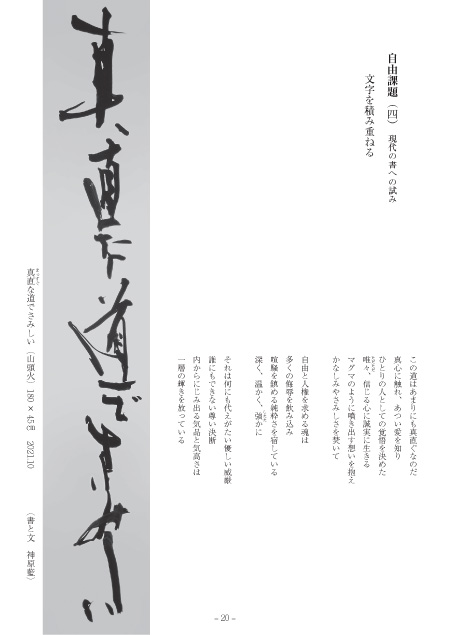 自由課題（四）　現代の書への試み
文字を積み重ねる
この道はあまりにも真直ぐなのだ
真心に触れ、あつい愛を知り
ひとりの人としての覚悟を決めた
唯々、信じる心に誠実に生きる
マグマのように噴き出す想いを抱え
かなしみやさみしさを焚いて
自由と人権を求める魂は
多くの侮辱を飲み込み
喧騒を鎮める純粋さを宿している
深く、温かく、強かに
それは何にも代えがたい優しい威厳
誰にもできない尊い決断
内からにじみ出る気品と気高さは
一層の輝きを放っている
真直な道でさみしい
真直な道でさみしい（山頭火）180×45㎝　2021.10
（書と文　神原藍）
– 20 –